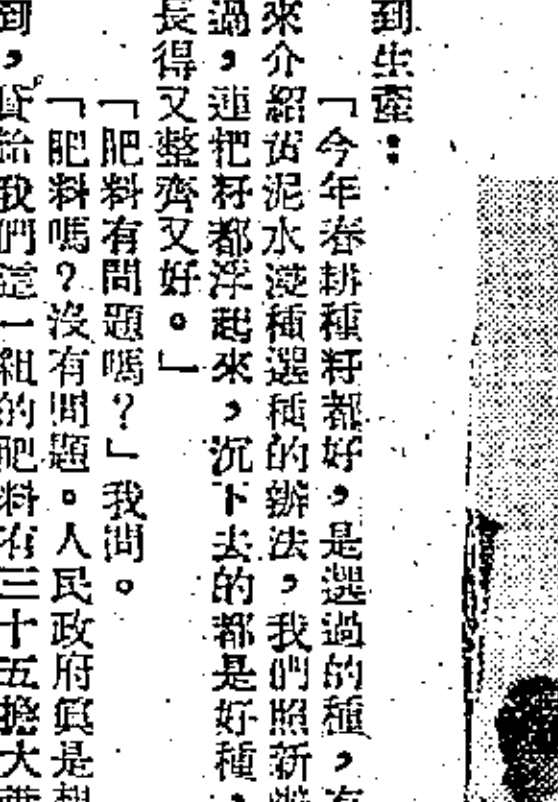 到生產：
「今年春耕種籽都好，是選過的種，有
來介紹黃泥水浸種選種的辦法，我們照新辦
過，連把籽都浮起來，沉下去的都是好種，
長得又整齊又好。」
「肥料有問題嗎？」我問。
「肥料嗎？沒有問題。人民政府眞是想
到，貸給我們這一組的肥料有三十五擔大